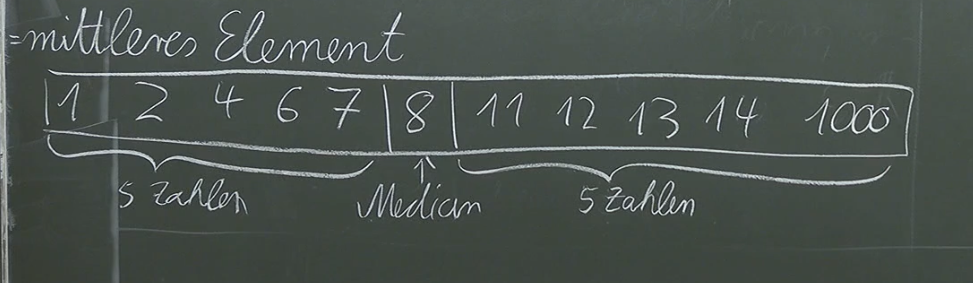 =mittleres Element
1 2 4 6 7 8 11 12 13 14 1000
5 Zahlen Median 5 Zahlen